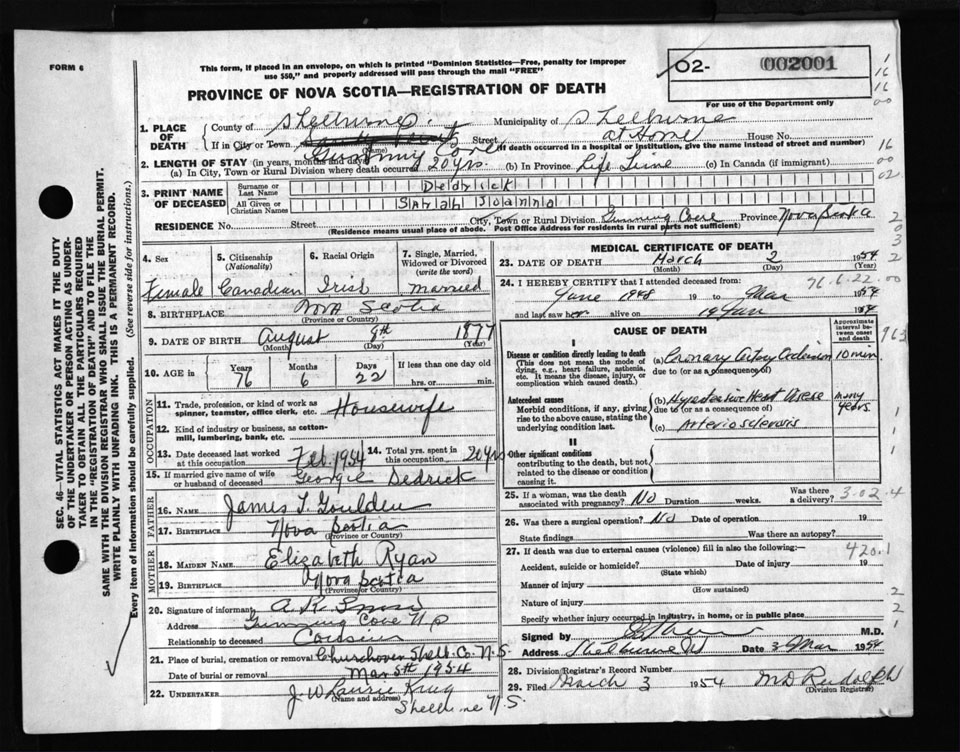 FORM 6
This form, if placed in an envelope, on which is printed "Dominion Statistics—Free, penalty for improper
use $50," and properly addressed will pass through the mail "FREE"
02- 002001
For use of the Department only
PROVINCE OF NOVA SCOTIA—REGISTRATION OF DEATH
1. PLACE OF DEATH
County of Shelburne Municipality of Shelburne
If in City or Town Street at Home House No.
(Name) (If death occurred in a hospital or institution, give the name instead of street and number)
Gunning Cove
2. LENGTH OF STAY (in years, months and days)
(a) In City, Town or Rural Division where death occurred 20 yrs. (b) In Province Life Time (c) In Canada (if immigrant)
3. PRINT NAME OF DECEASED
Surname or Last Name Dedrick
All Given or Christian Names Sarah Joanna
RESIDENCE No. Street City, Town or Rural Division Gunning Cove Province Nova Scotia
(Residence means usual place of abode. Post Office Address for residents in rural parts not sufficient)
4. SEX Female
5. CITIZENSHIP (Nationality) Canadian
6. Racial Origin Irish
7. Single, Married, Widowed or Divorced (write the word) Married
8. BIRTHPLACE Nova Scotia
(Province or Country)
9. DATE OF BIRTH August 9th 1877
(Month) (Day) (Year)
10. AGE in Years 76 Months 6 Days 22 If less than one day old
hrs. or min.
OCCUPATION
11. Trade, profession, or kind of work as
spinner, teamster, office clerk, etc. Housewife
12. Kind of industry or business, as cotton-
mill, lumbering, bank, etc.
13. Date deceased last worked
at this occupation Feb. 1954
14. Total yrs. spent in
this occupation 20 yrs
15. If married give name of wife
or husband of deceased George Dedrick
FATHER
16. NAME James T. Goulden
17. BIRTHPLACE Nova Scotia
(Province or Country)
MOTHER
18. MAIDEN NAME Elizabeth Ryan
19. BIRTHPLACE Nova Scotia
(Province or Country)
20. Signature of informant A. R.
Address Gunning Cove N S
Relationship to deceased Cousin
21. Place of burial, cremation or removal Churchover Shelb. Co. N.S.
Date of burial or removal Mar 5th 1954
22. UNDERTAKER J. W. Laurie King
(Name and address)
Shelburne N.S.
MEDICAL CERTIFICATE OF DEATH
23. DATE OF DEATH March 2 1954
(Month) (Day) (Year)
24. I HEREBY CERTIFY that I attended deceased from: 76.6.22
June 1948 19 to Mar 1954
and last saw her alive on 19 Jan 1954
CAUSE OF DEATH
Approximate interval between onset and death
I
Disease or condition directly leading to death
(This does not mean the mode of
dying, e.g., heart failure, asthenia,
etc. It means the disease, injury, or
complication which caused death.)
(a) Coronary Artery Occlusion 10 min
due to (or as a consequence of)
Antecedent causes
Morbid conditions, if any, giving
rise to the above cause, stating the
underlying condition last.
(b) Hypertensive Heart Disease many years
due to (or as a consequence of)
(c) Arteriosclerosis
II
Other significant conditions
contributing to the death, but not
related to the disease or condition
causing it.
25. If a woman, was the death
associated with pregnancy? No Duration weeks. Was there a delivery? 3-02-4
26. Was there a surgical operation? No Date of operation 19
State findings Was there an autopsy?
27. If death was due to external causes (violence) fill in also the following:— 420.1
Accident, suicide or homicide? Date of injury 19
(State which)
Manner of injury
(How sustained)
Nature of injury
Specify whether injury occurred in industry, in home, or in public place
Signed by M.D.
Address Shelburne NS Date 3 Mar 1954
28. Division Registrar's Record Number
29. Filed March 3 1954 M D Rudolph
(Division Registrar)
SEC. 46—VITAL STATISTICS ACT MAKES IT THE DUTY
OF THE UNDERTAKER OR PERSON ACTING AS UNDER-
TAKER TO OBTAIN ALL THE PARTICULARS REQUIRED
IN THE "REGISTRATION OF DEATH" AND TO FILE THE
SAME WITH THE DIVISION REGISTRAR WHO SHALL ISSUE THE BURIAL PERMIT.
WRITE PLAINLY WITH UNFADING INK. THIS IS A PERMANENT RECORD.
Every item of information should be carefully supplied. (See reverse side for instructions.)